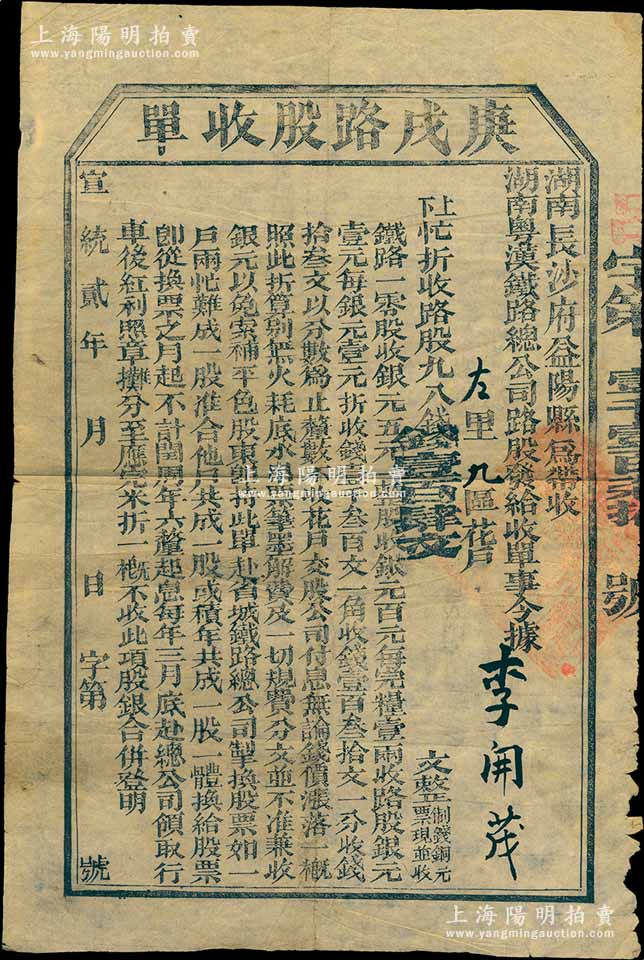 上海陽明拍賣
www.yangmingauction.com
庚戌路股收單
湖南長沙府益陽縣爲帶收
湖南粵漢鐵路總公司路股發給收單事今據
左里九區花戶 李開茂
上下忙折收路股九八錢 文整 制錢銅元票現並收
鐵路一零股收銀元五元 股收銀元百元每完糧壹兩收路股銀元
壹元每銀元壹元折收錢 叁百文一角收錢壹百叁拾文一分收錢
拾叁文以分數爲止釐數 花戶交股公司付息無論錢價漲落一槪
照此折算別無火耗底水 筆墨解費及一切規費分文並不准兼收
銀元以免索補平色股東 持此單赴省城鐵路總公司掣換股票如一
戶兩忙難成一股准合他戶共成一股或積年共成一股一體換給股票
卽從換票之月起不計閏周年六釐起息每年三月底赴總公司領取行
車後紅利照章攤分至應完米折一槪不收此項股銀合併登明
宣統貳年 月 日 字第 號
字第 號
上海陽明拍賣
www.yangmingauction.com